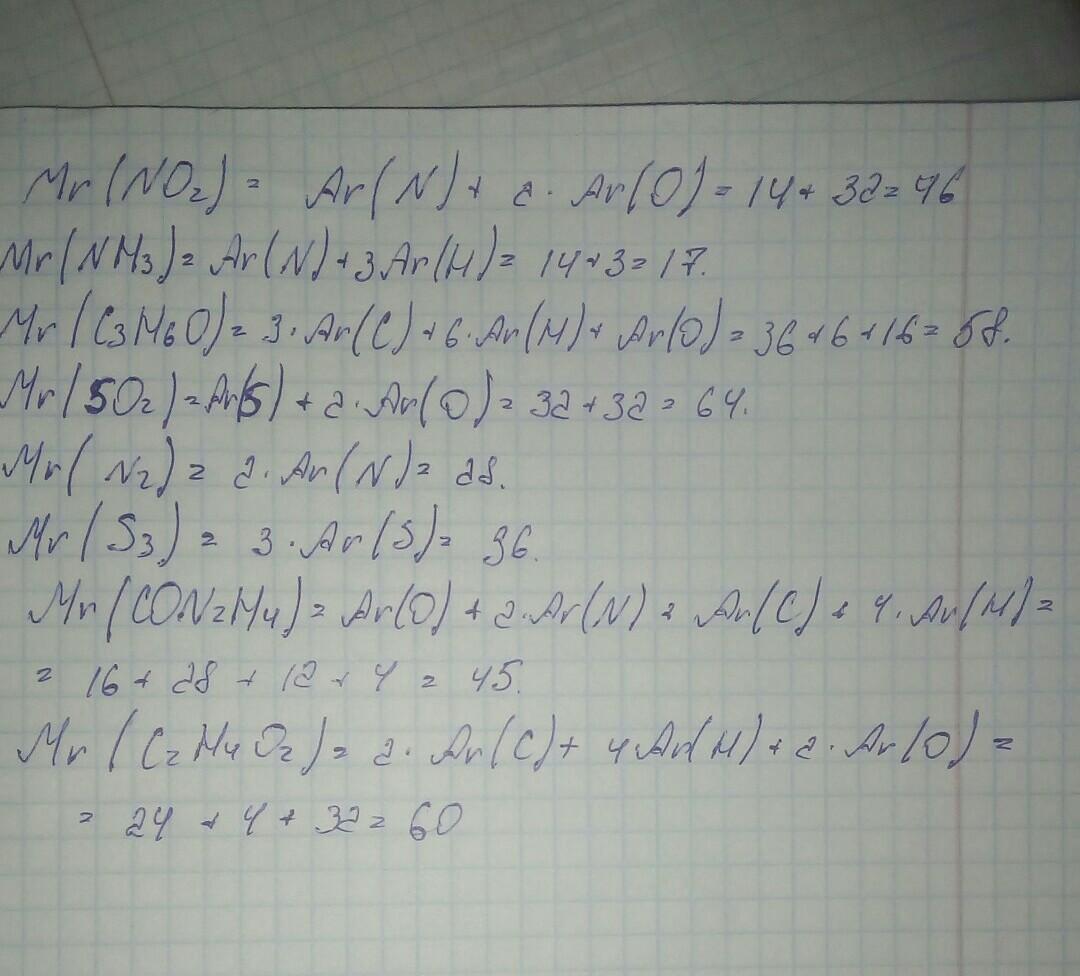 Mr(NO₂) = Ar(N) + 2 · Ar(O) = 14 + 32 = 46
Mr(NH₃) = Ar(N) + 3Ar(H) = 14 + 3 = 17.
Mr(C₃H₆O) = 3 · Ar(C) + 6 · Ar(H) + Ar(O) = 36 + 6 + 16 = 58.
Mr(SO₂) = Ar(S) + 2 · Ar(O) = 32 + 32 = 64.
Mr(N₂) = 2 · Ar(N) = 28.
Mr(S₃) = 3 · Ar(S) = 96.
Mr(CON₂H₄) = Ar(O) + 2 · Ar(N) + Ar(C) + 4 · Ar(H) =
= 16 + 28 + 12 + 4 = 45.
Mr(C₂H₄O₂) = 2 · Ar(C) + 4Ar(H) + 2 · Ar(O) =
= 24 + 4 + 32 = 60